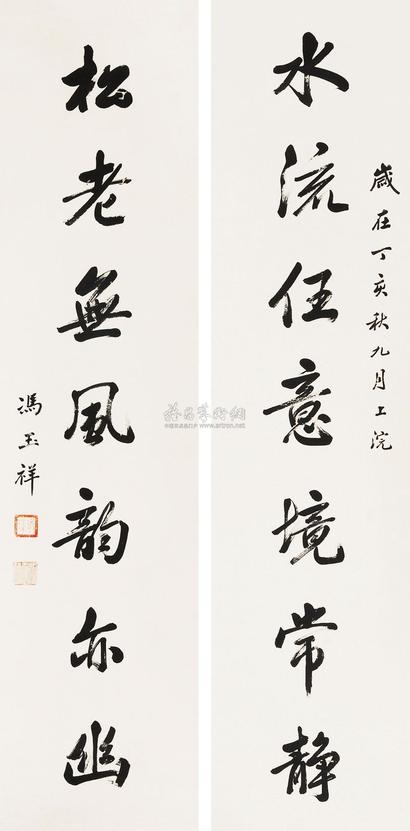 歲在丁亥秋九月上浣
水流任意境常静
松老無風韵亦幽
馮玉祥
www.artron.net